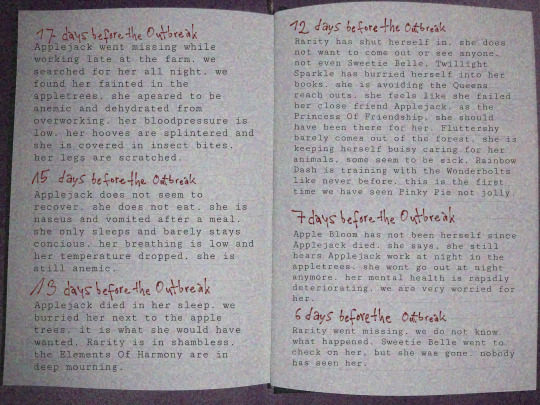 17 days before the Outbreak
Applejack went missing while
working late at the farm. we
searched for her all night. we
found her fainted in the
appletrees. she apeared to be
anemic and dehydrated from
overworking. her bloodpressure is
low. her hooves are splintered and
she is covered in insect bites.
her legs are scratched.
15 days before the Outbreak
Applejack does not seem to
recover. she does not eat. she is
naseus and vomited after a meal.
she only sleeps and barely stays
concious. her breathing is low and
her temperature dropped. she is
still anemic.
13 days before the Outbreak
Applejack died in her sleep. we
burried her next to the apple
trees. it is what she would have
wanted. Rarity is in shambless.
the Elements Of Harmony are in
deep mourning.
12 days before the Outbreak
Rarity has shut herself in. she does
not want to come out or see anyone.
not even Sweetie Belle. Twillight
Sparkle has burried herself into her
books. she is avoiding the Queens
reach outs. she feels like she failed
her close friend Applejack. as the
Princess Of Friendship, she should
have been there for her. Fluttershy
barely comes out of the forest. she is
keeping herself buisy caring for her
animals, some seem to be sick. Rainbow
Dash is training with the Wonderbolts
like never before. this is the first
time we have seen Pinky Pie not jolly.
7 days before the Outbreak
Apple Bloom has not been herself since
Applejack died. she says, she still
hears Applejack work at night in the
appletrees. she wont go out at night
anymore. her mental health is rapidly
deteriorating. we are very worried for
her.
6 days before the Outbreak
Rarity went missing. we do not know
what happened. Sweetie Belle went to
check on her, but she was gone. nobody
has seen her.